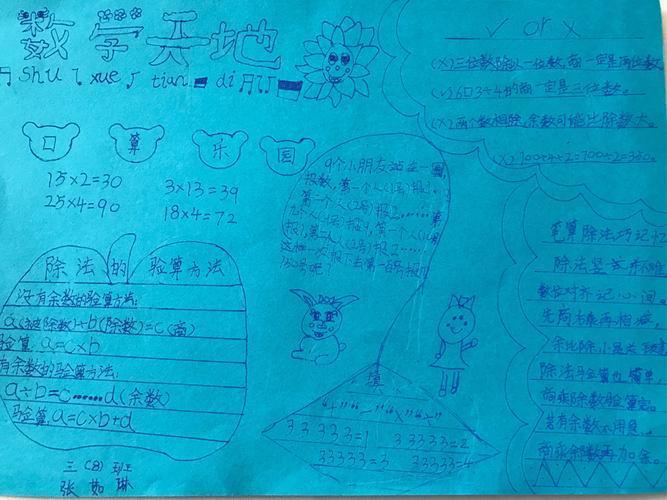 数学天地
shu xue tian di
口 算 乐 园
15×2=30 3×13=39
25×4=90 18×4=72
除法的验算方法
没有余数的验算方法:
a(被除数)÷b(除数)=c(商)
验算:a=c×b
有余数的验算方法:
a÷b=c……d(余数)
验算:a=c×b+d
三(8)班
张茹琳
9个小朋友站在一圈
报数,第一个人(1号)报1。
第二个人(2号)报2……第
九个人(9号)报9,第一个人(1号)
这样一次报下去第一百号报的
几号呢?
填
"+""-""×""÷"
3 3 3 3 3=1 3 3 3 3 3=2
3 3 3 3 3=3 3 3 3 3 3=4
√ or ×
(×)三位数除以一位数,商一定是两位数
(√)6口3÷4的商一定是三位数。
(×)两个数相除,余数可能比除数大。
(×)700÷4÷2=700÷2=350。
笔算除法巧记忆
除法竖式并不难
数位对齐记心间
先商右乘再相减,
余比除小是关键
除法验算也简单,
商乘除数验算完。
若有余数不用畏,
商乘除数再加余。